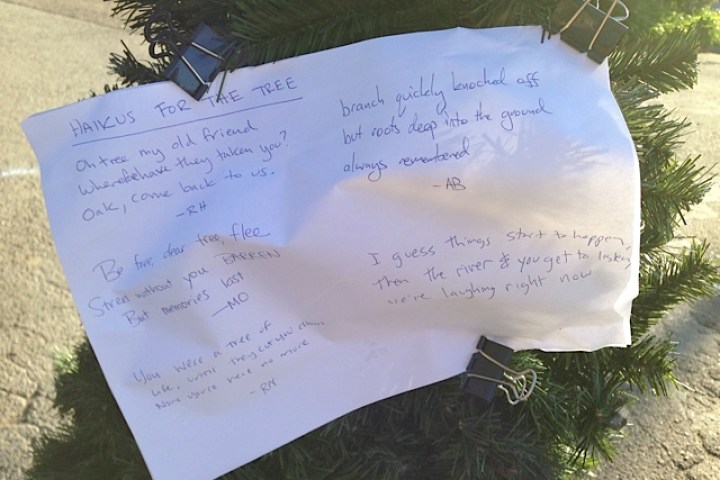 HAIKUS FOR THE TREE
Oh tree my old friend
Where have they taken you?
Oak, come back to us.
-RH
Be free, dear tree, flee
Street without you BARREN
But memories last
-MO
You were a tree of
life, until they cut you down
Now you're here no more
branch quickly knocked off
but roots deep into the ground
always remembered
-AB
I guess things start to happen,
then the river & you get to
we're laughing right now